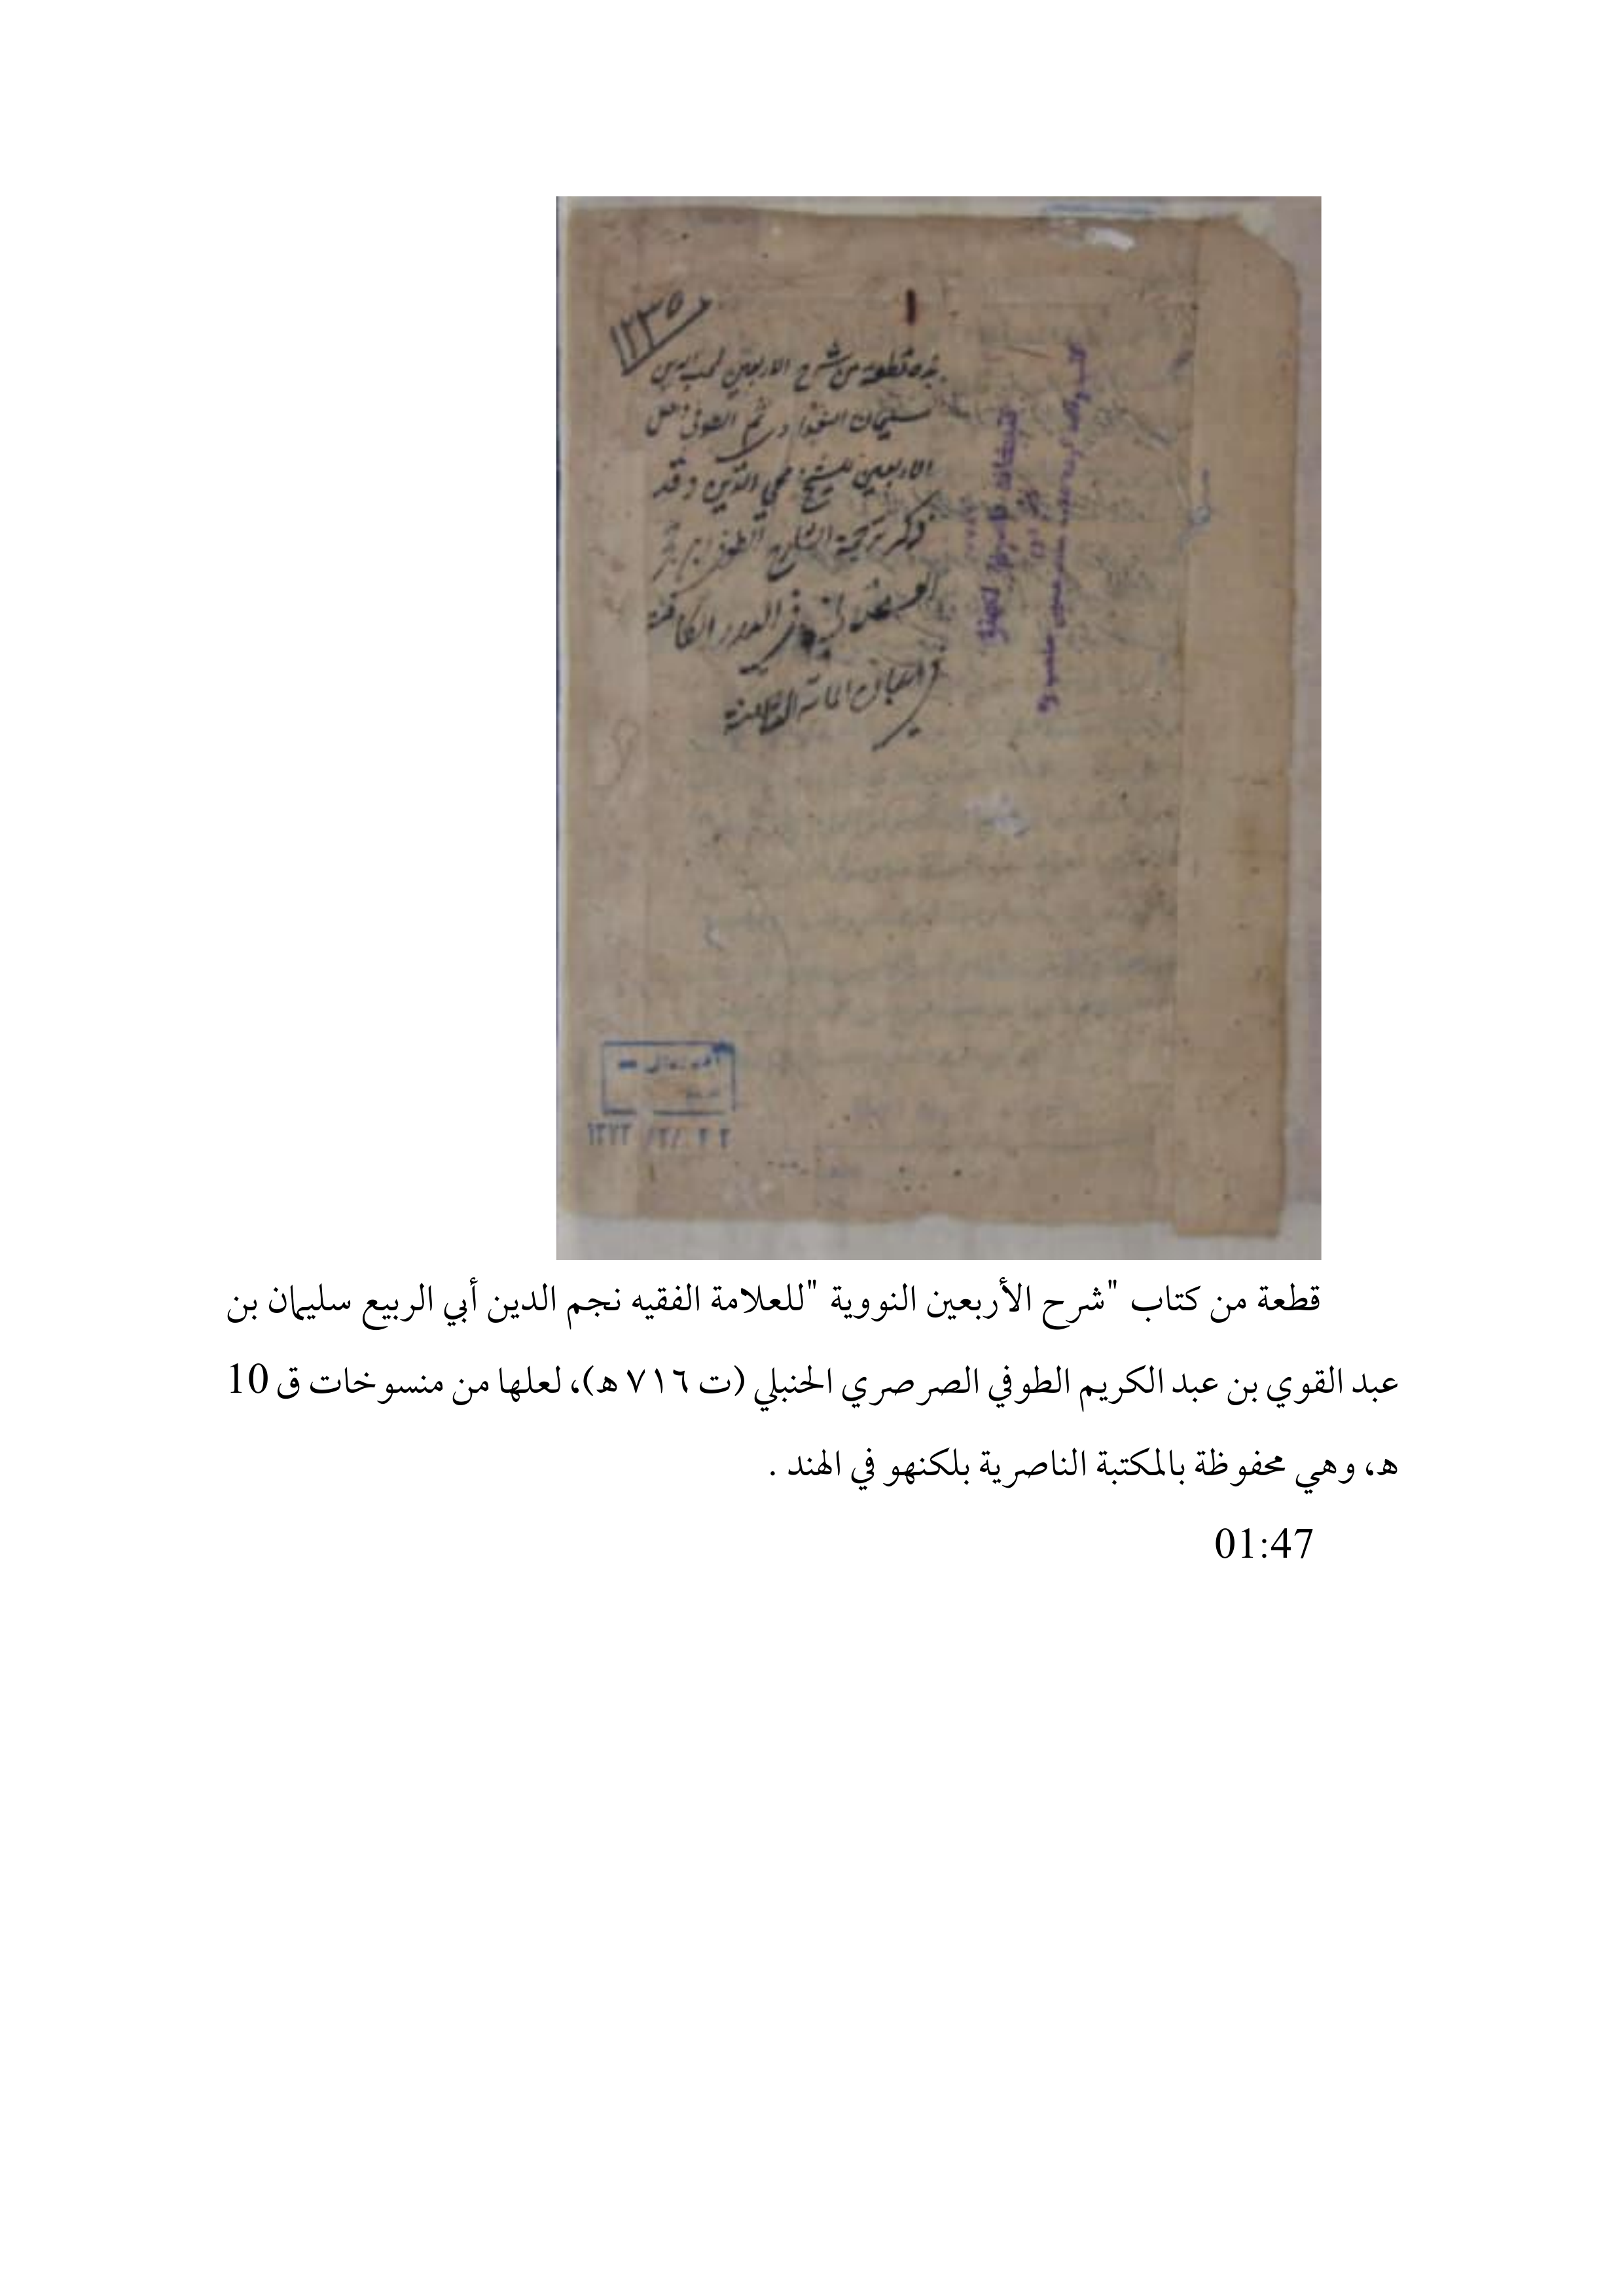 ١٢٣٥
هذه قطعة من شرح الاربعين لمحب الدين
سليمان البغدادي ثم الصوفي على
الاربعين للشيخ محي الدين وقد
ذكر ترجمة الشارح الطوفي ابن حجر
العسقلاني في الدرر الكامنة
في اعيان المائة الثامنة
قطعة من كتاب "شرح الأربعين النووية "للعلامة الفقيه نجم الدين أبي الربيع سليمان بن
عبد القوي بن عبد الكريم الطوفي الصرصري الحنبلي (ت ٧١٦ هـ)، لعلها من منسوخات ق 10
هـ، وهي محفوظة بالمكتبة الناصرية بلكنهو في الهند .
01:47